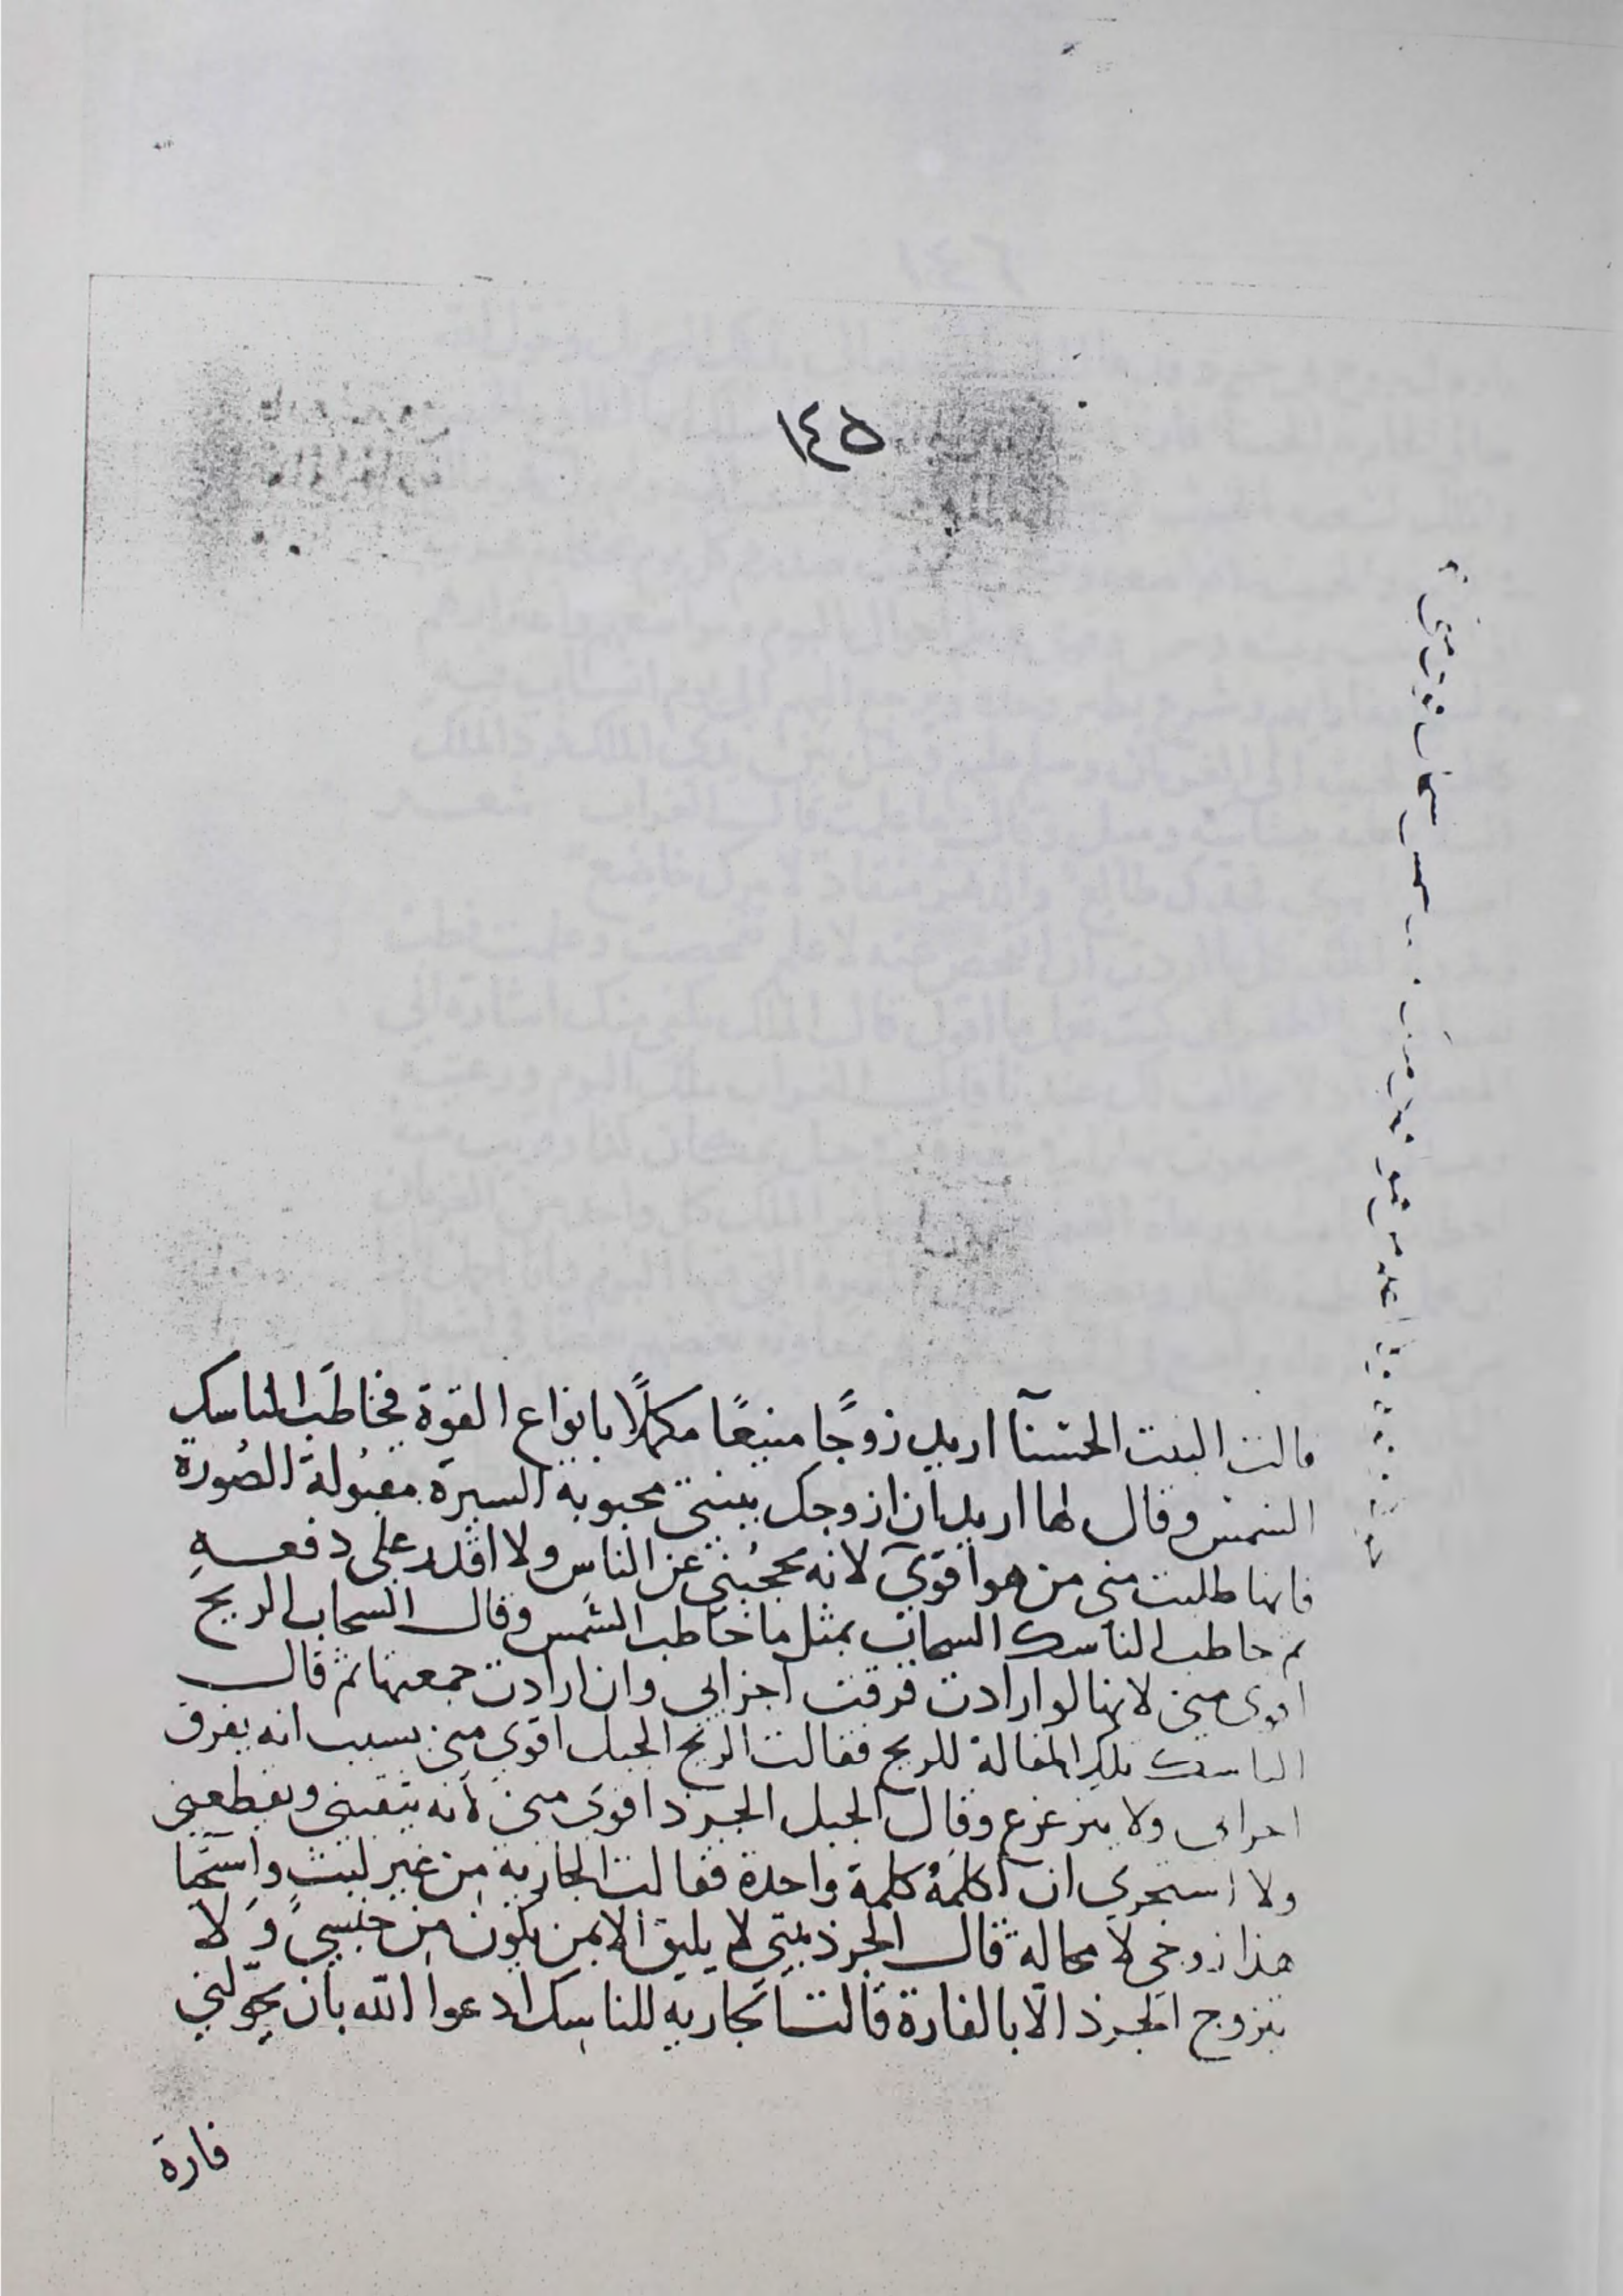 ١٤٥
قالت البنت الحسنآ اريد زوجًا منيعًا مكملًا بانواع القوة فخاطب الناسك
الشمس وقال لها اريد بان ازوجك ببنتي محبوبة السيرة مقبولة الصورة
فانها طلبت مني من هو اقوي لانه يحجبني عن الناس ولا اقدر على دفعه
ثم خاطب الناسك السحاب بمثل ما خاطب الشمس وقال السحاب الريح
اقوى مني لانها لو ارادت فرقت اجزاى وان ارادت جمعتها ثم قال
الناسك تلك المقالة للريح فقالت الريح الجبل اقوى مني بسبب انه يفرق
اجزاى ولا يتزعزع وقال الجبل الجرذ اقوى مني لانه يثقبني ويقطعني
ولا استجري ان اكلمهُ كلمة واحدة فقالت الجارية من غير لبث
هذا زوجي لا محالة قال الجرذ بنتي لا يليق الا بمن يكون من جنسي ولا
يتزوج الجرذ الّا بالفارة قالت الجارية للناسك ادعوا الله بان يحوّلني
فارة